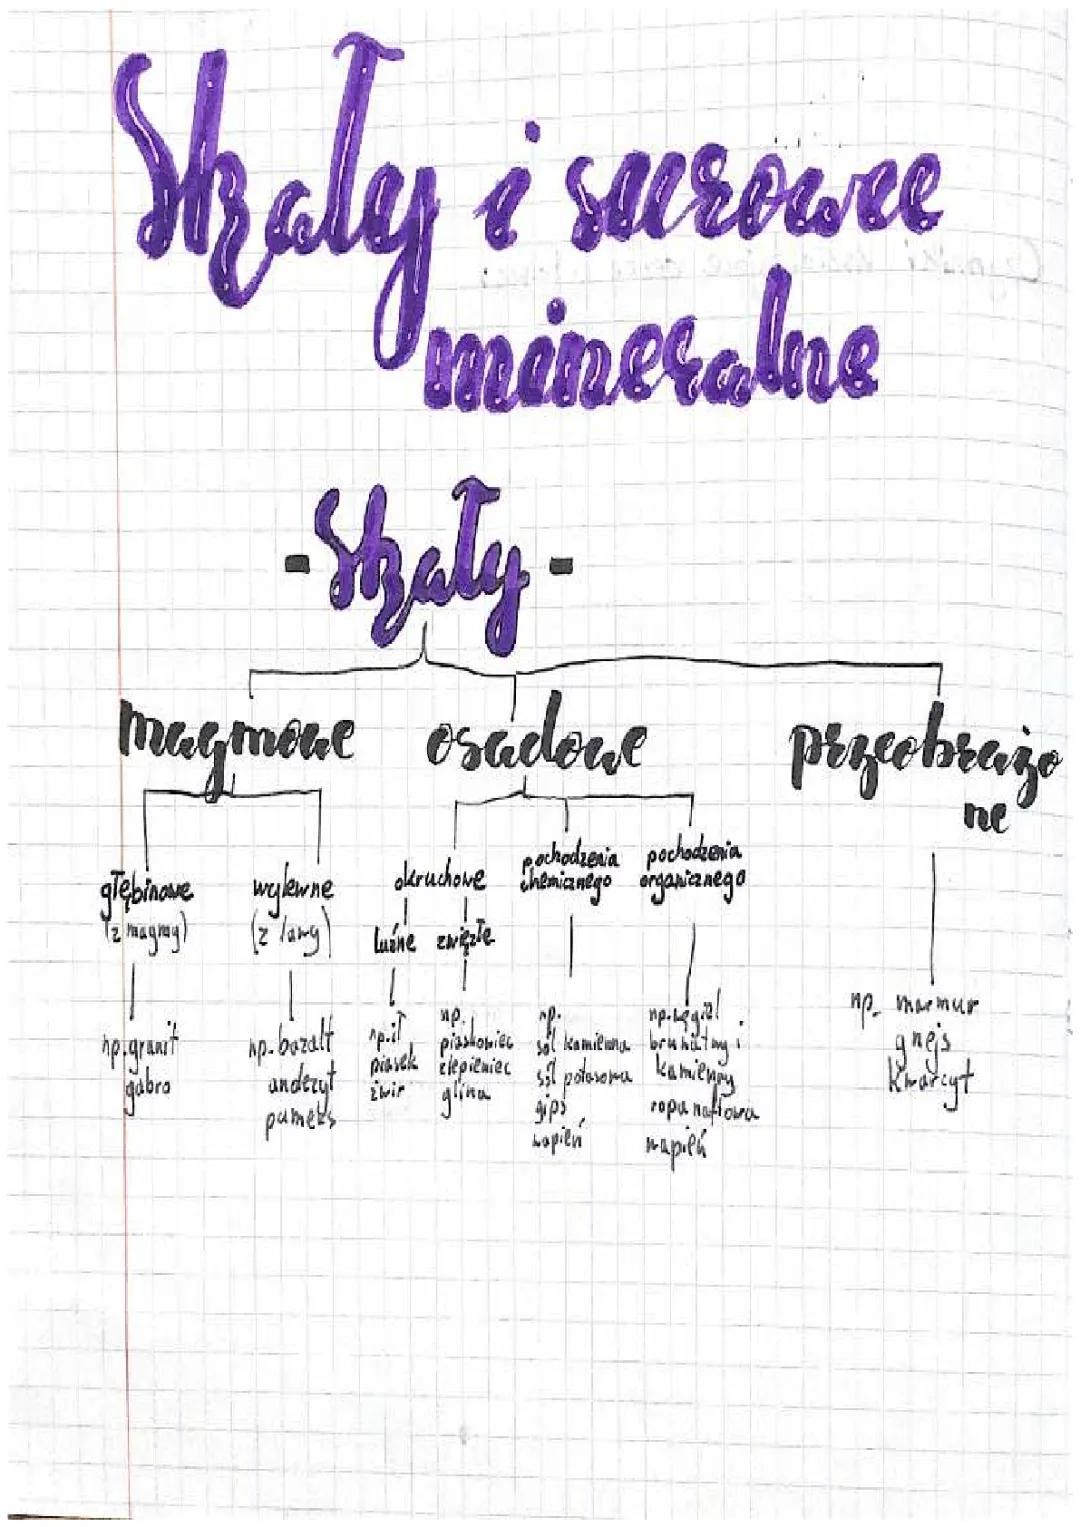 Skały i surowce
mineralne
- Skały -
magmowe osadowe przeobrażo
ne
głębinowe
(z magmy)
wylewne
(z lawy)
okruchowe
luźne zwięzłe
pochodzenia
chemicznego
pochodzenia
organicznego
np. granit
gabro
np. bazalt
andezyt
pumeks
np. ił
piasek
żwir
np.
piaskowiec
zlepieniec
glina
np.
sól kamienna
sól potasowa
gips
wapień
np. węgiel
brunatny i
kamienny
ropa naftowa
wapień
np. marmur
gnejs
kwarcyt